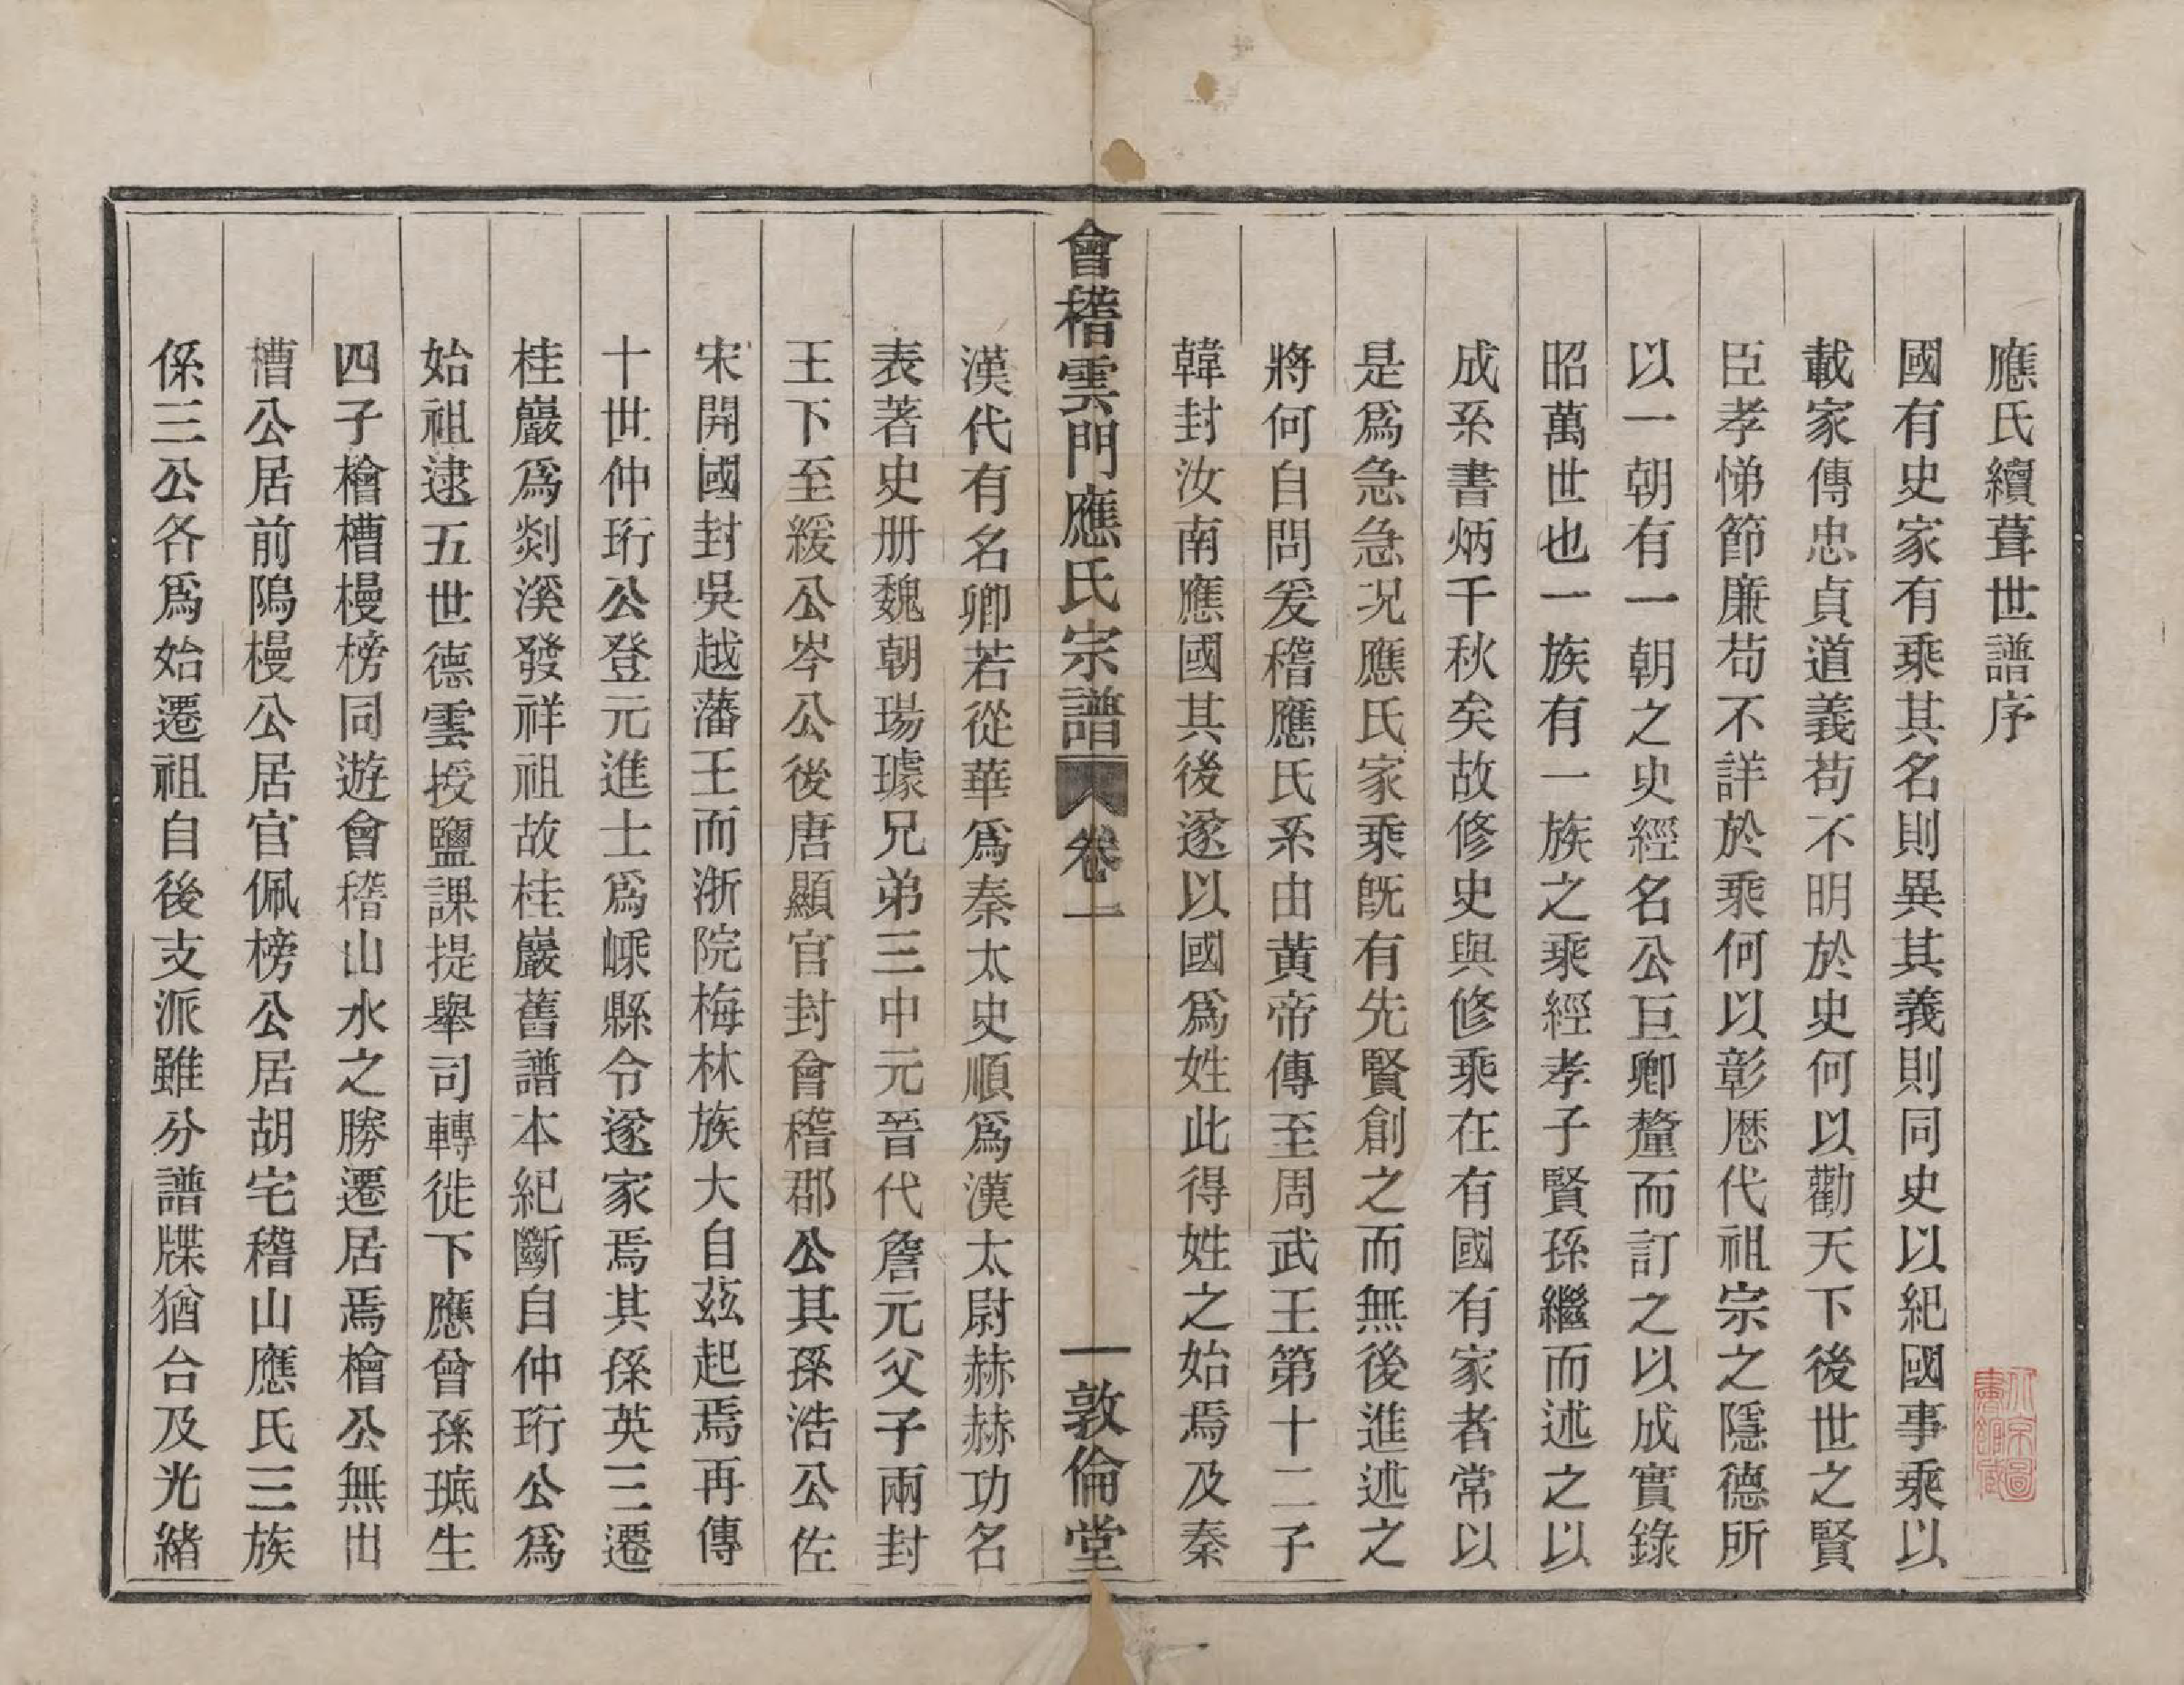 應氏續葺世譜序
國有史家有乘其名則異其義則同史以紀國事乘以
載家傳忠貞道義苟不明於史何以勸天下後世之賢
臣孝悌節廉苟不詳於乘何以彰歷代祖宗之隱德所
以一朝有一朝之史經名公巨卿釐而訂之以成實錄
昭萬世也一族有一族之乘經孝子賢孫繼而述之以
成系書炳千秋矣故修史與修乘在有國有家者常以
是爲急急况應氏家乘旣有先賢創之而無後進述之
將何自問爰稽應氏系由黃帝傳至周武王第十二子
韓封汝南應國其後遂以國爲姓此得姓之始焉及秦
會稽雲門應氏宗譜 卷一 一 敦倫堂
漢代有名卿若從華爲秦太史順爲漢太尉赫赫功名
表著史册魏朝瑒璩兄弟三中元晉代詹元父子兩封
王下至緩公岑公後唐顯官封會稽郡公其孫浩公佐
宋開國封吳越藩王而浙院梅林族大自茲起焉再傳
十世仲珩公登元進士爲嵊縣令遂家焉其孫英三遷
桂巖爲剡溪發祥祖故桂巖舊譜本紀斷自仲珩公爲
始祖逮五世德雲授鹽課提舉司轉徙下應曾孫珷生
四子檜槽槾榜同遊會稽山水之勝遷居焉檜公無出
槽公居前隖槾公居官佩榜公居胡宅稽山應氏三族
係三公各爲始遷祖自後支派雖分譜牒猶合及光緒